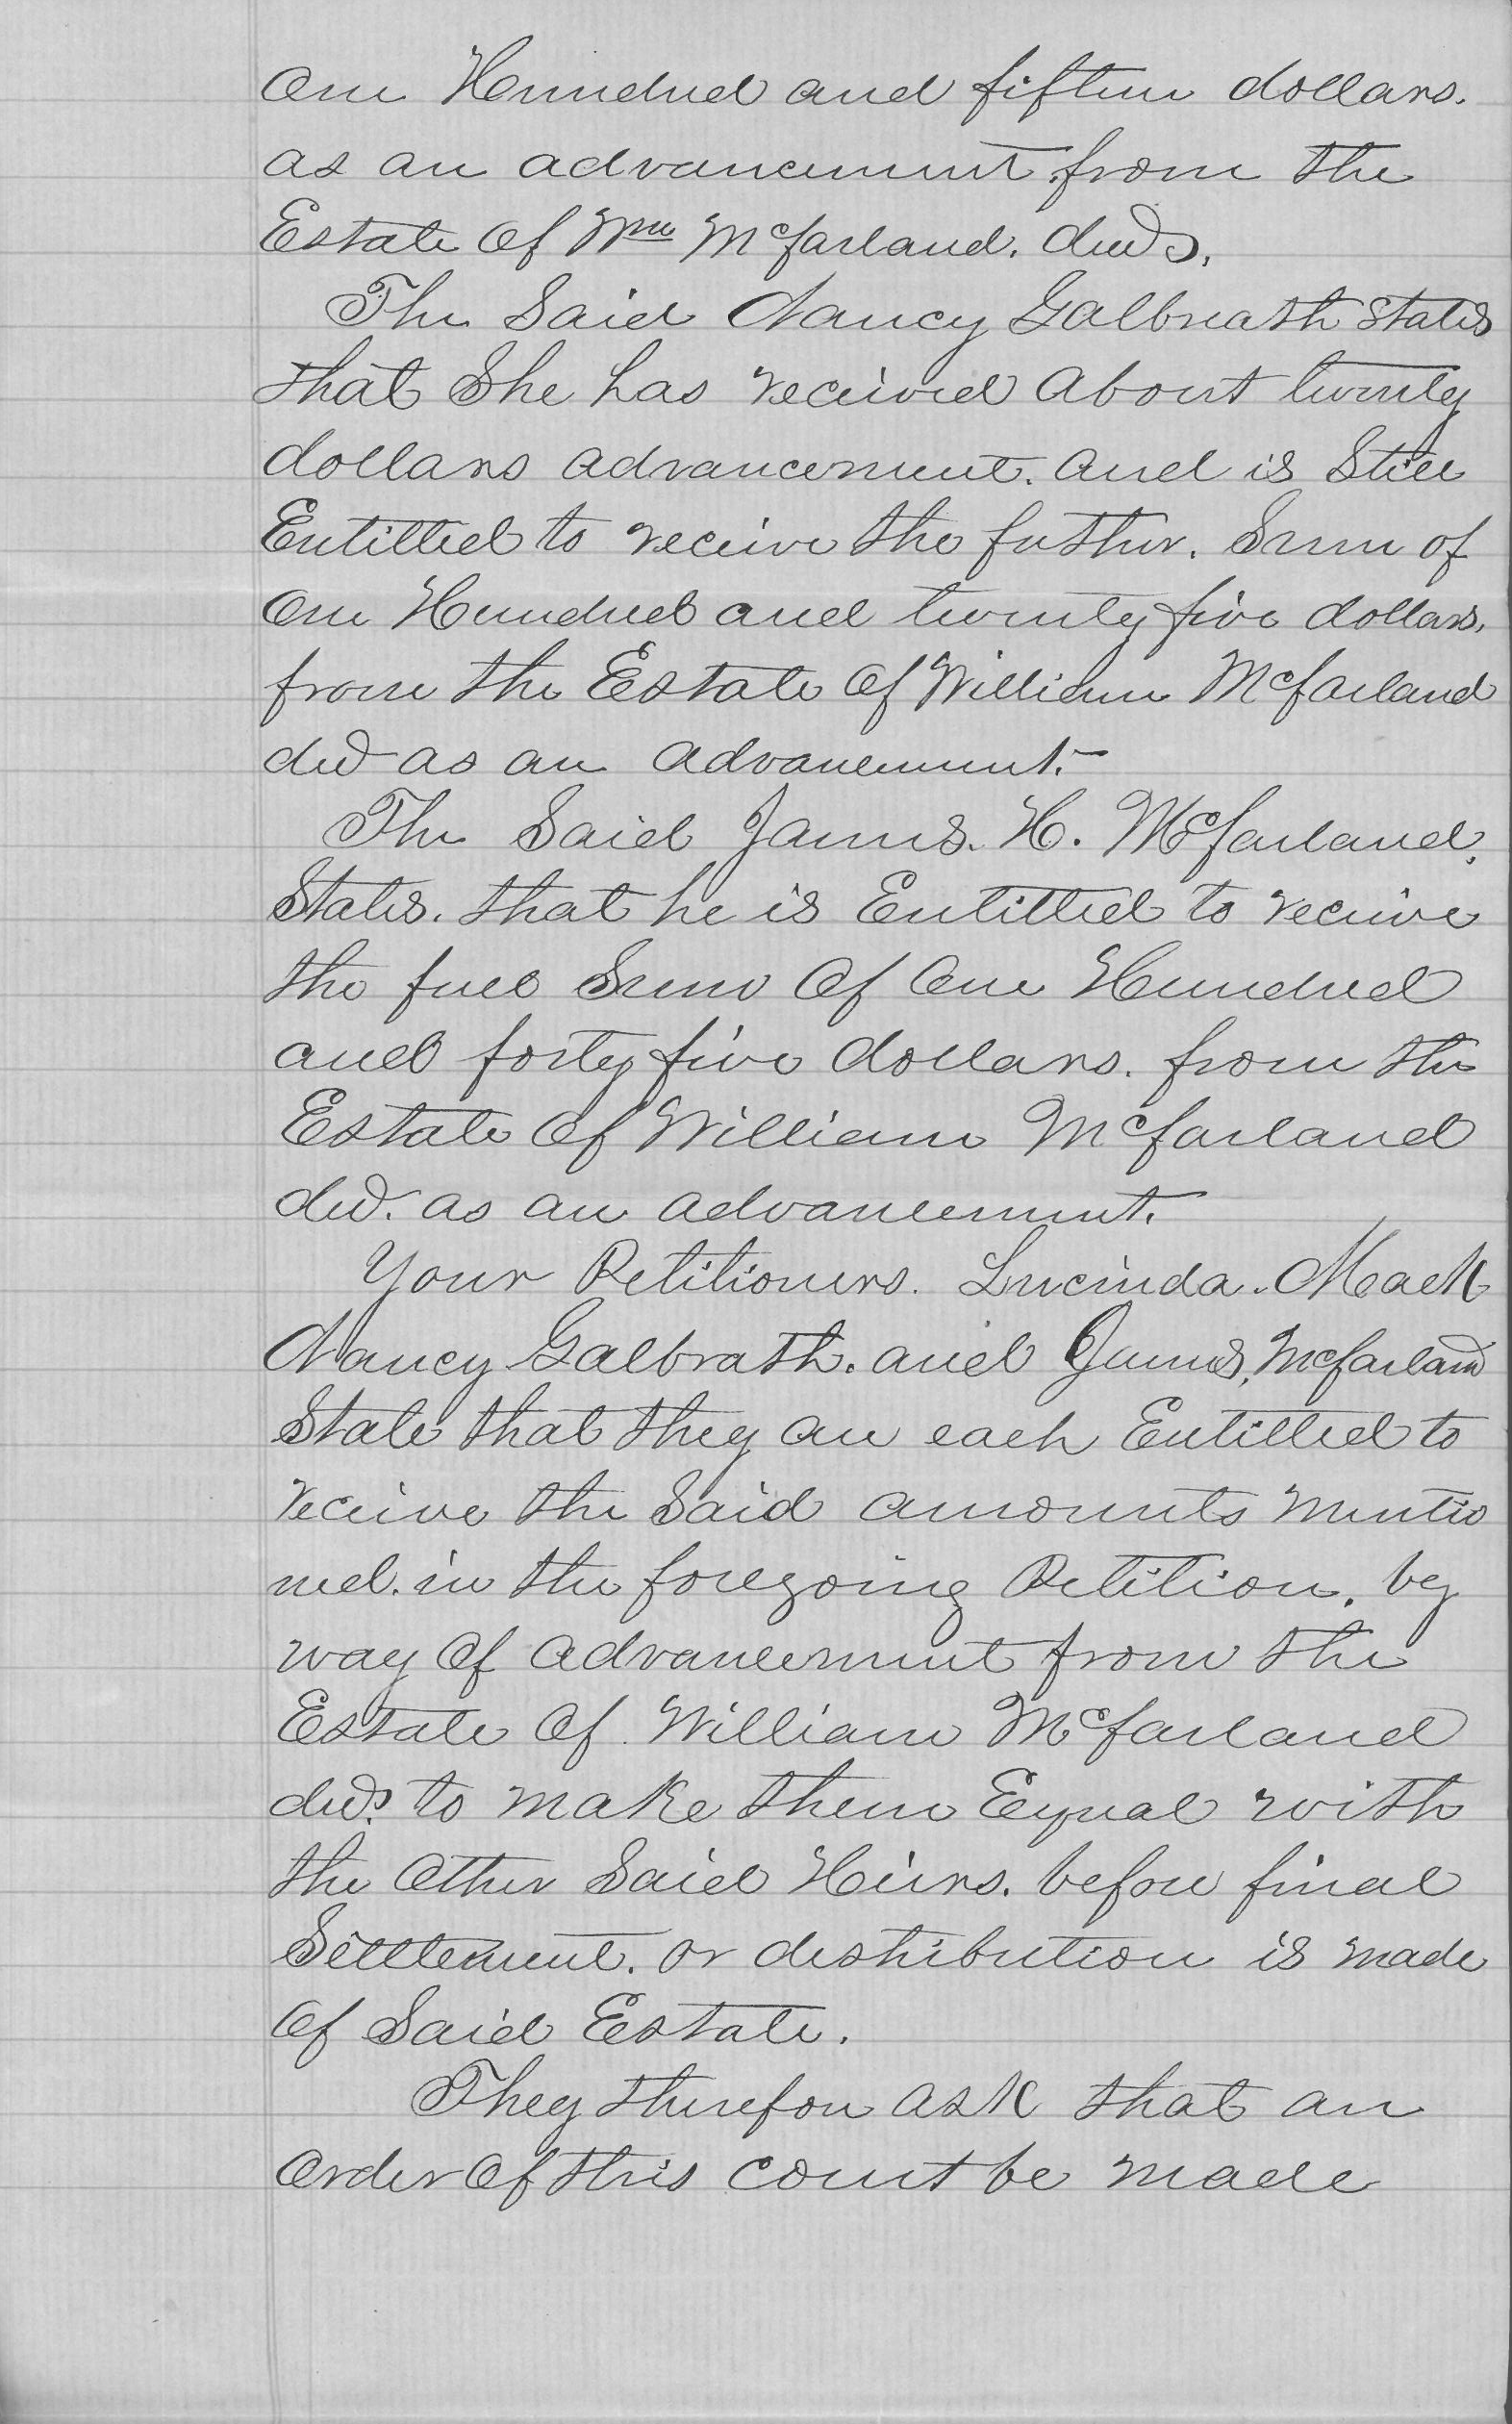 One Hundred and fifteen dollars.
as an advancement. from the
Estate of Wm McFarland. decd.
The Said Nancy Galbreath States
that She has received About twenty
dollars advancement. and is Still
Entitled to receive the futher. Sum of
One Hundred and twenty five dollars.
from the Estate of William McFarland
decd as an advancement.
The Said James. H. McFarland.
States. that he is Entitled to receive
the full Sum Of One Hundred
and forty five dollars. from the
Estate Of William McFarland
decd. as an advancement.
Your Petitioners. Lucinda. Mack
Nancy Galbrath. and James, McFarland
State that they are each Entitled to
receive the Said amounts mentio
ned. in the foregoing Petition. by
way Of advancement from the
Estate Of William McFarland
decd. to make them Equal with
the Other Said Heirs. before final
Settlement. or distribution is made
Of Said Estate.
They therefore ask that an
Order Of this court be made